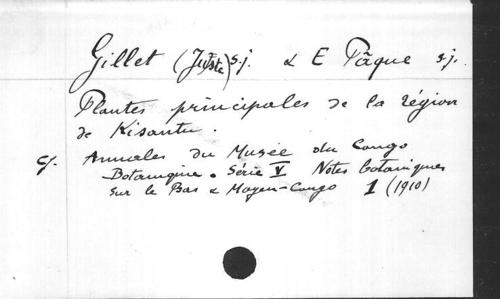 Gillet (Juste) s.j. & E Pâque s.j.
Plantes principales de la région
de Kisantu.
cf. Annales du Musée du Congo
Botanique. Série V Notes botaniques
sur le Bas & Moyen-Congo 1 (1910)